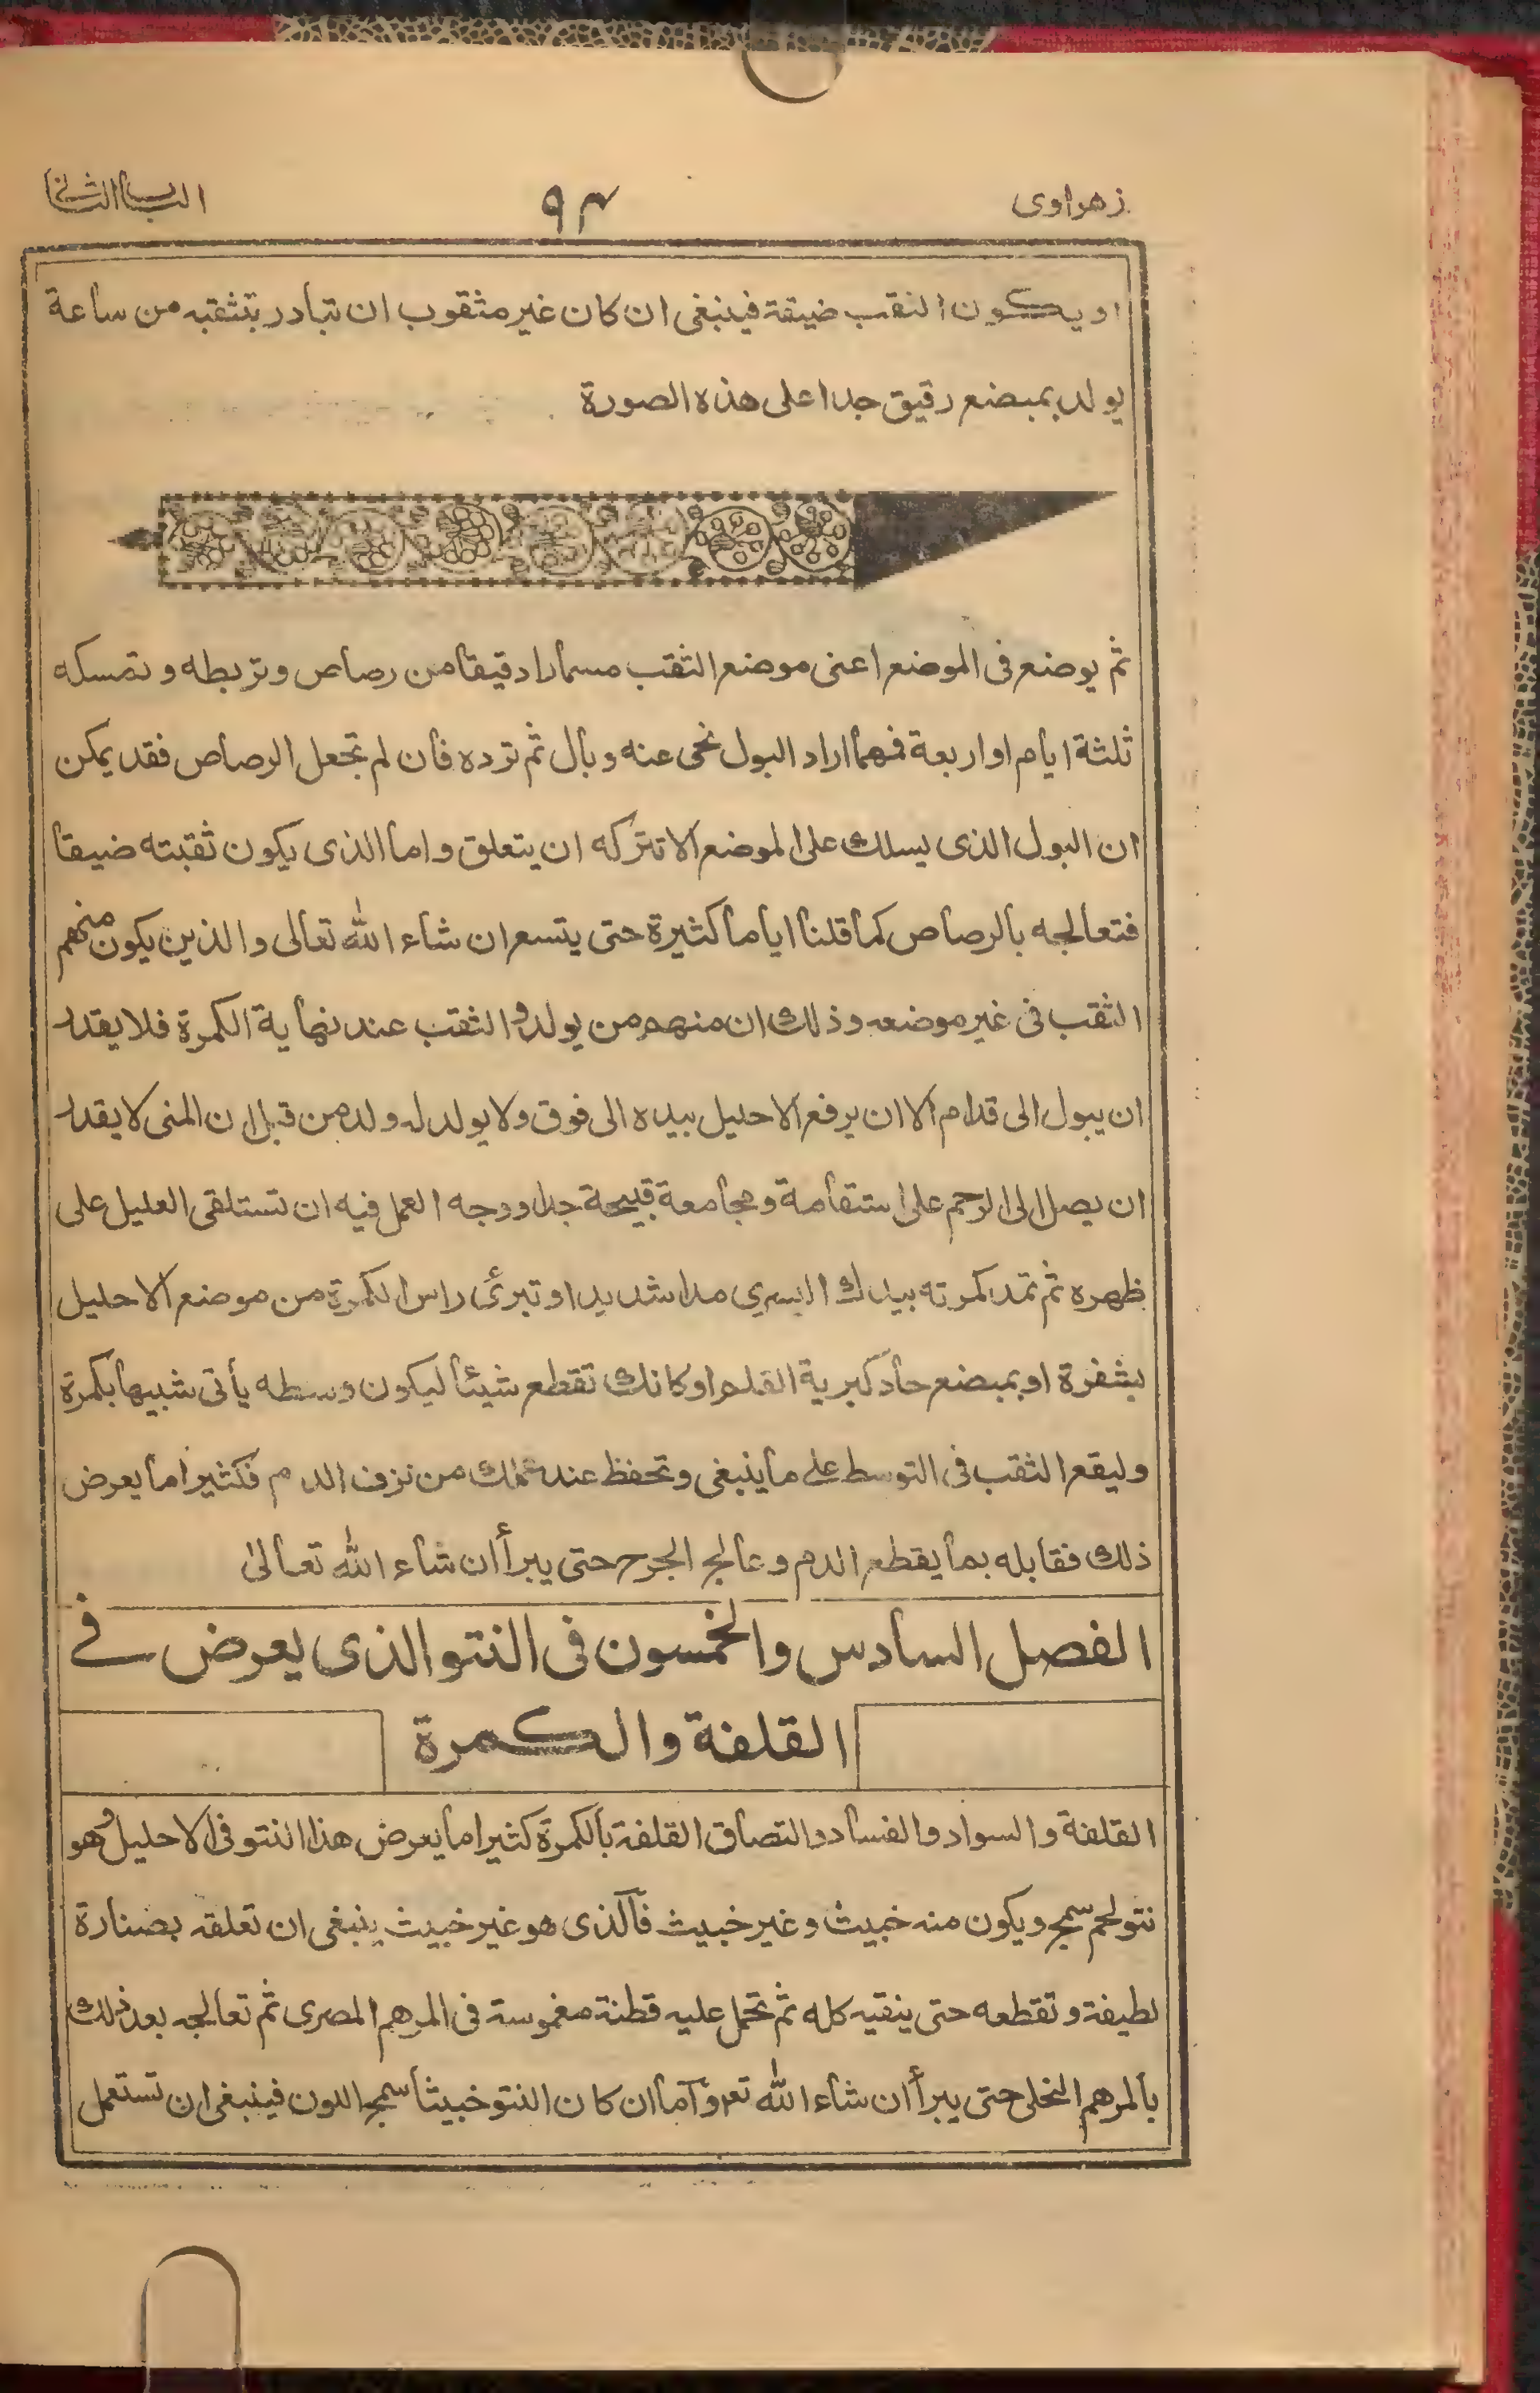 زهراوی
۹۴
الباب الثانی
او یکون الثقب ضیقة فینبغی ان کان غیر مثقوب ان تبادر بتثقبه من ساعة
یولد بمبضع رقیق جدا علی هذه الصورة
ثم یوضع فی الموضع اعنی موضع الثقب مسمارا دقیقا من رصاص وتربطه و تمسکه
ثلثة ایام او اربعة فمهما اراد البول نحی عنه و بال ثم ترده فان لم تجعل الرصاص فقد یمکن
ان البول الذی یسلك علی الموضع الا تترکه ان یتعلق و اما الذی یکون ثقبته ضیقا
فتعالجه بالرصاص کما قلنا ایاما کثیرة حتی یتسع ان شاء الله تعالی و الذین یکون منهم
الثقب فی غیر موضعه و ذلك ان منهم من یولد و الثقب عند نهایة الکمرة فلا یقدر
ان یبول الی قدام الا ان یرفع الاحلیل بیده الی فوق ولا یولد له ولد من قبل ان المنی لا یقدر
ان یصل الی الرحم علی استقامة و مجامعة قبیحة جدا و وجه العمل فیه ان تستلقی العلیل علی
ظهره ثم تمد کمرته بیدك الیسری مدا شدیدا و تبرئ راس الکمرة من موضع الاحلیل
بشفرة او بمبضع حاد کبریة القلم او کانك تقطع شیئا لیکون وسطه یأتی شبیها بکمرة
و لیقع الثقب فی التوسط علی ما ینبغی و تحفظ عند عملك من نزف الدم فکثیرا ما یعرض
ذلك فقابله بما یقطع الدم و عالج الجرح حتی یبرأ ان شاء الله تعالیٰ
الفصل السادس والخمسون فی النتو الذی یعرض فے
القلفة والکمرة
القلفة و السواد و الفساد و التصاق القلفة بالکمرة کثیرا ما یعرض هذا النتو فی الاحلیل و هو
نتو لحم سمج و یکون منه خبیث و غیر خبیث فالذی هو غیر خبیث ینبغی ان تعلقه بصنارة
لطیفة و تقطعه حتی ینقیه کله ثم تحمل علیه قطنة مغموسة فی المرهم المصری ثم تعالجه بعد ذلك
بالمرهم النخلی حتی یبرأ ان شاء الله تعہ و اما ان کان النتو خبیثا سمج اللون فینبغی ان تستعمل